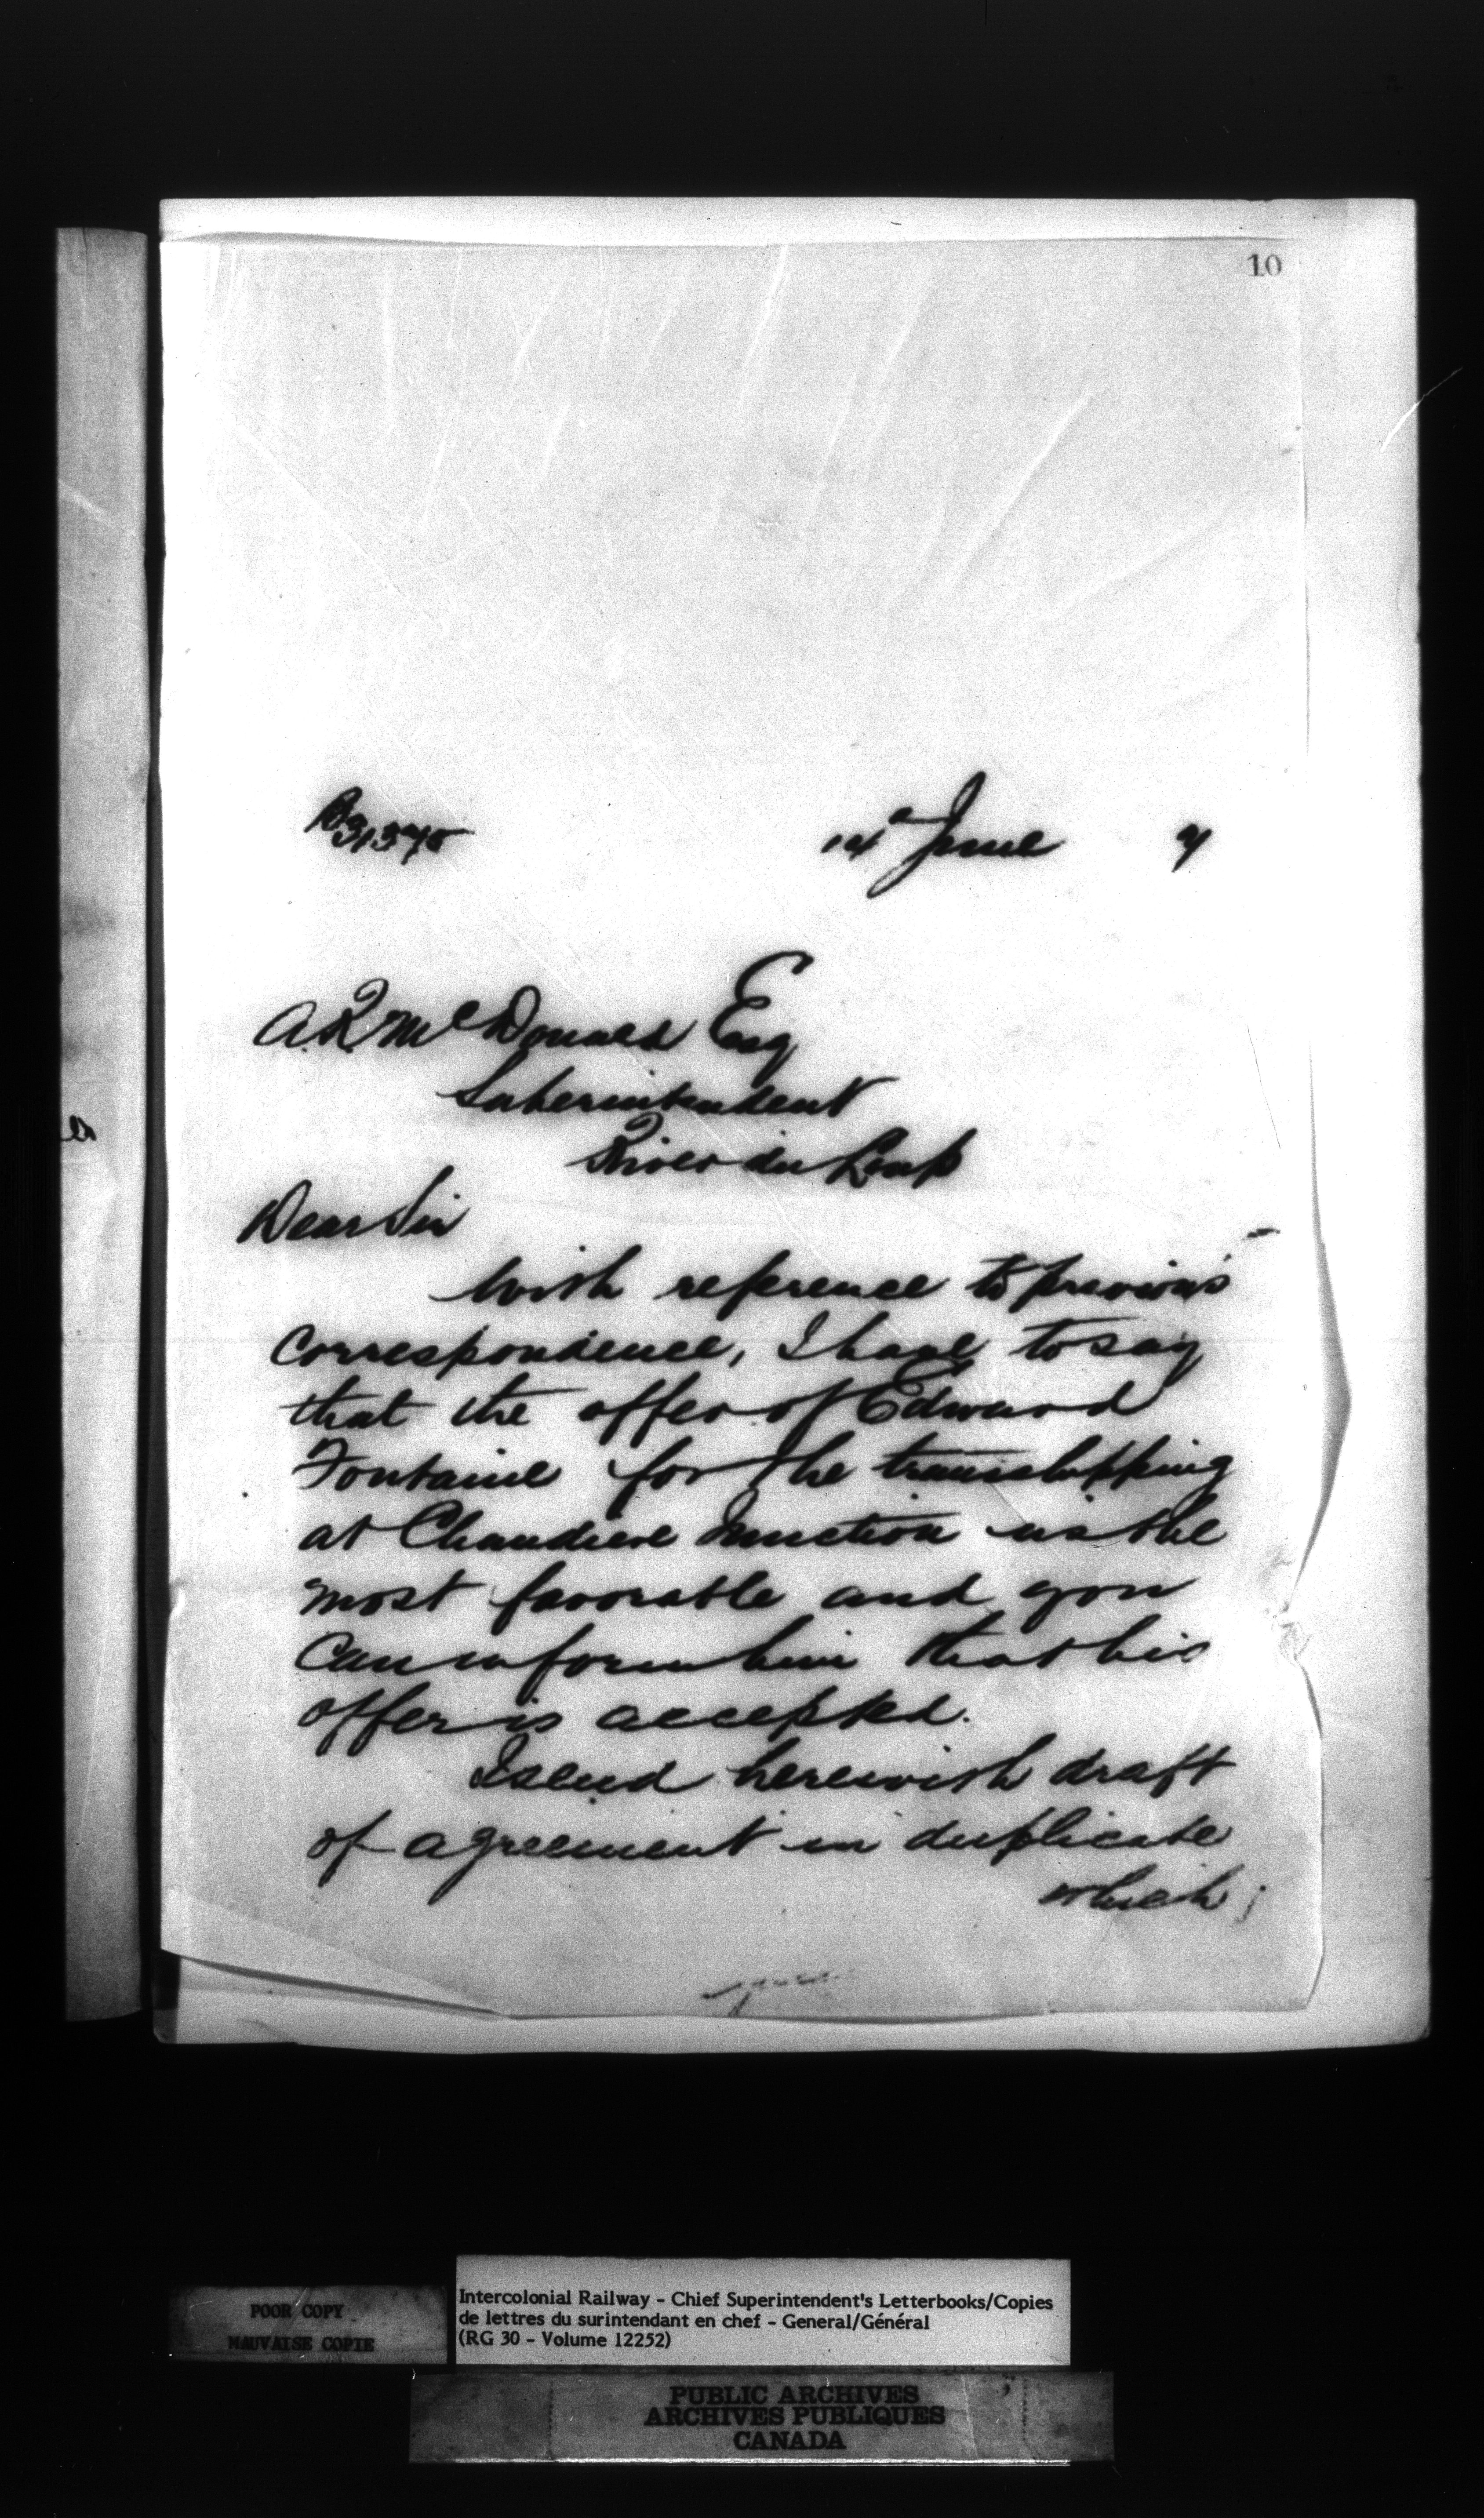 10
14th June 7
A. R. McDonald Esq
Superintendent
River du Loup
Dear Sir
With reference to previous
correspondence, I have to say
that the offer of Edward
Fontaine for the transhipping
at Chaudiere Junction is the
most favorable and you
can inform him that his
offer is accepted.
I send herewith draft
of agreement in duplicate
which
POOR COPY
MAUVAISE COPIE
Intercolonial Railway - Chief Superintendent's Letterbooks/Copies
de lettres du surintendant en chef - General/Général
(RG 30 - Volume 12252)
PUBLIC ARCHIVES
ARCHIVES PUBLIQUES
CANADA